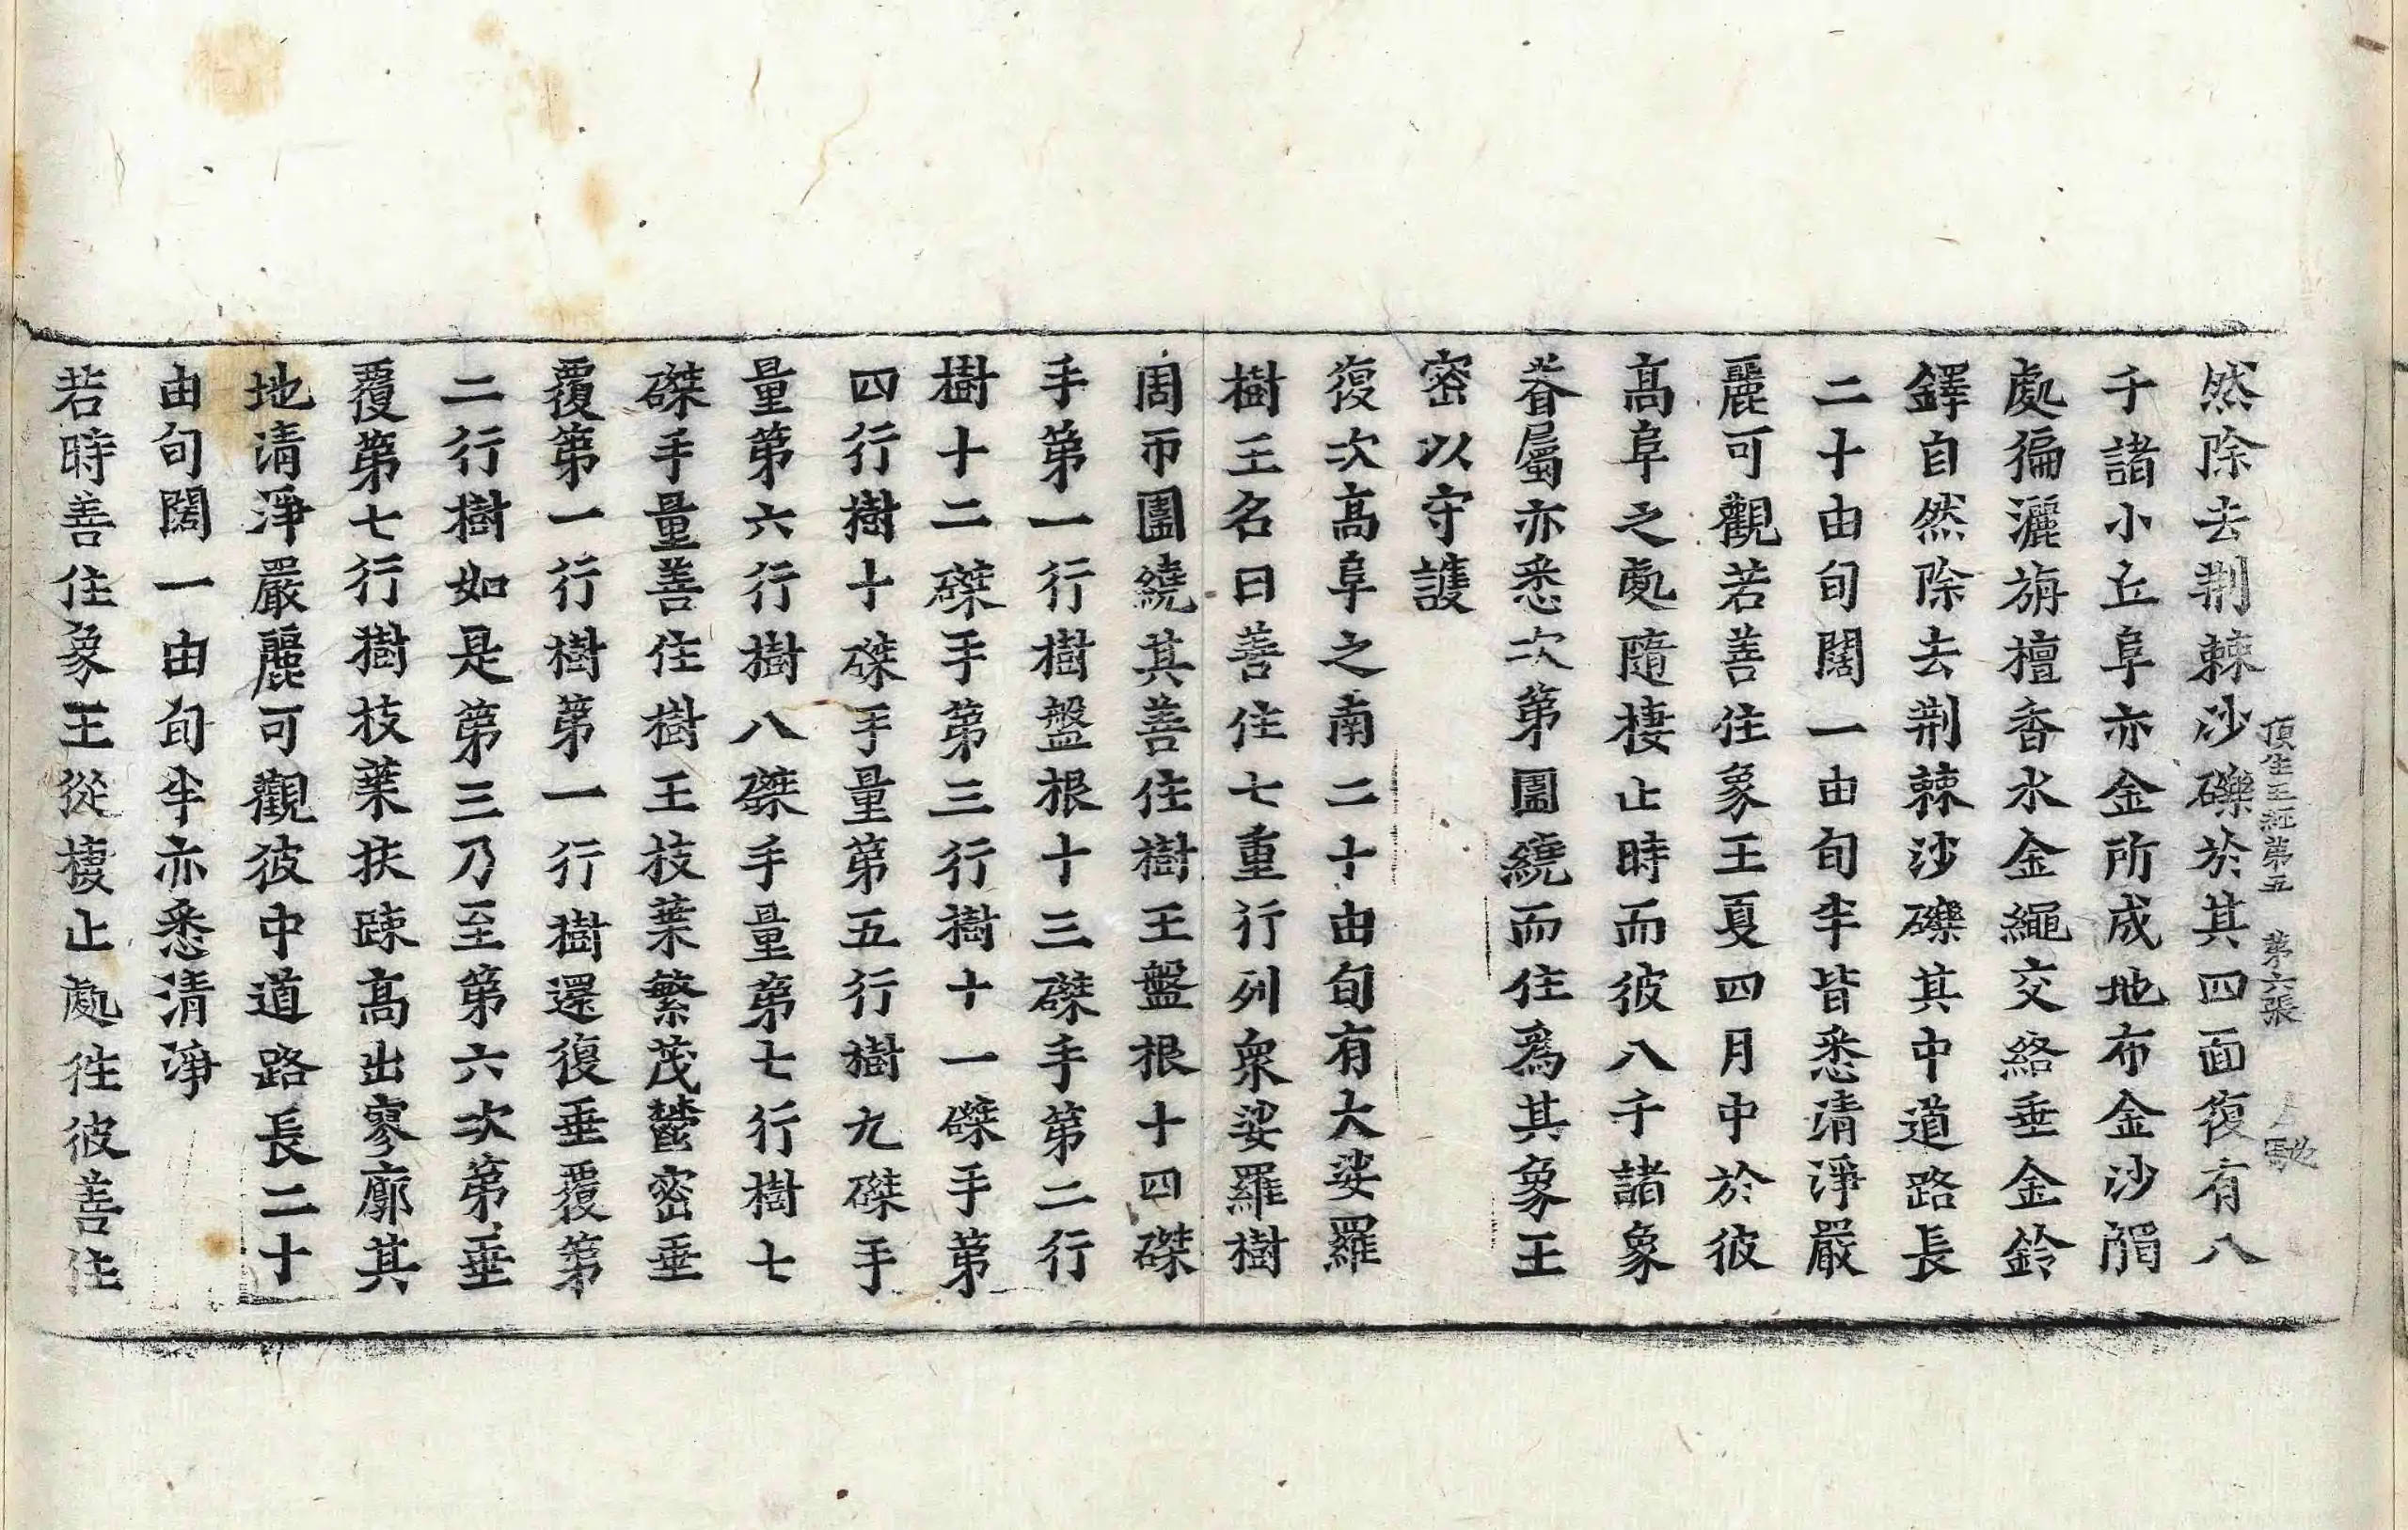 頂生王經第五　第六張　馳
然除去荆棘沙礫於其四面復有八
千諸小丘阜亦金所成地布金沙𨵗
處徧灑旃檀香水金繩交絡垂金鈴
鐸自然除去荆棘沙礫其中道路長
二十由旬闊一由旬半皆悉清淨嚴
麗可觀若善住象王夏四月中於彼
髙阜之處隨棲止時而彼八千諸象
眷屬亦悉次第圍繞而住爲其象王
密以守護
復次髙阜之南二十由旬有大娑羅
樹王名曰善住七重行列衆娑羅樹
周帀圍繞其善住樹王盤根十四磔
手第一行樹盤根十三磔手第二行
樹十二磔手第三行樹十一磔手第
四行樹十磔手量第五行樹九磔手
量第六行樹八磔手量第七行樹七
磔手量善住樹王枝葉繁茂鬱密垂
覆第一行樹第一行樹還復垂覆第
二行樹如是第三乃至第六次第垂
覆第七行樹枝葉扶踈髙出寥廓其
地清淨嚴麗可觀彼中道路長二十
由旬闊一由旬半亦悉清淨
若時善住象王從棲止處徃彼善住